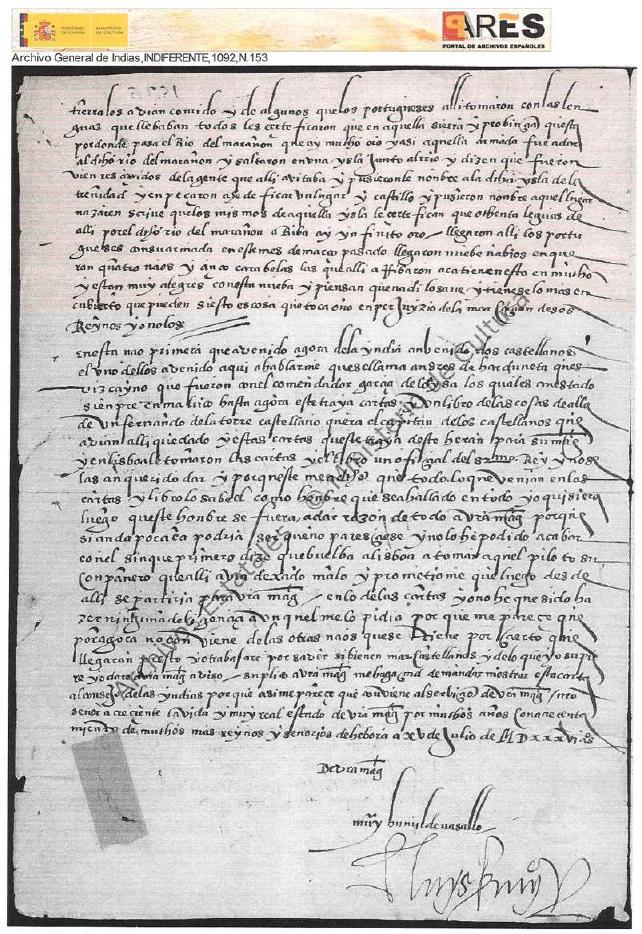 GOBIERNO DE ESPAÑA
MINISTERIO DE CULTURA
PARES
PORTAL DE ARCHIVOS ESPAÑOLES
Archivo General de Indias,INDIFERENTE,1092,N.153
tierra los avian comido y de algunos que los portugueses alli tomaron con las len
guas que llebaban todos les certeficaron que en aquella sierra y probinçia questa
por donde pasa el Rio del marañon que ay mucho oro y asi aquella armada fue a dar
al dicho rio del marañon y saltaron en una ysla junto al rio y dizen que fueron
bien resçividos de la gente que alli avitaba y pusieronle nonbre a la dicha ysla de la
trenidad y enpeçaron a hedeficar un lugar y castillo y pusieron nonbre aquel lugar
nazaren scrive que los mismos de aquella ysla le certefican que ochenta leguas de
alli por el dicho rio del marañon a Riba ay ynfinito oro llegaron alli los portu
gueses con su armada en este mes de março pasado llegaron nuebe nabios en que
van quatro naos y çinco carabelas las que alli aRibaron aca tienen esto en mucho
y estan muy alegres con esta nueba y piensan que nadi lo save y tienese lo mas en
cubierto que pueden si esto es cosa que toca o no en perjuyzio de la demarcaçion desos
Reynos yo no lo se
en esta nao primera que a venido agora de la yndia an venido dos castellanos
el uno dellos a venido aqui a hablarme que se llama andres de harduneta ques
vizcayno que fueron con el comendador garcia de loaysa los quales an estado
sienpre en maluco hasta agora este traya cartas y un libro de las cosas de alla
de un fernando de la torre castellano que era el capitan de los castellanos que
avian alli quedado y estas cartas queste traya deste heran para su mag
y en lisboa le tomaron las cartas y el libro un ofiçial del sermo Rey y no se
las an querido dar y porqueste me dixo que todo lo que venia en las
cartas y libro lo sabe el como honbre que se a hallado en todo yo quisiera
luego queste honbre se fuera a dar razon de todo a vra mag porque
si anda por aca podria ser que no pareçiese y no lo he podido acabar
con el sin que primero diz que buelba a lisboa a tomar aquel piloto su
conpañero que alli avia dexado malo y prometiome que luego desde
alli se partiria para vra mag en lo de las cartas yo no he querido ha
zer ninguna deligençia aunquel me lo pidia por que me pareçe que
por agora no conviene de las otras naos que se tiene por çierto que
llegaran presto yo trabajare por saver si bienen mas castellanos y de lo que yo supie
re yo dare a vra mag aviso suplico a vra mag me haga md de mandar mostrar esta carta
al consejo de las yndias por que asi me pareçe que conviene al serbiçio de vra mag nro
señor acreçiente la vida y muy real estado de vra mag por muchos años con acreçenta
miento de muchos mas reynos y señorios de hebora a xv de Julio de MDxxxvi aºs
De vra mag
muy humil de vasallo
© Ministerio de Cultura
Archivos Estatales